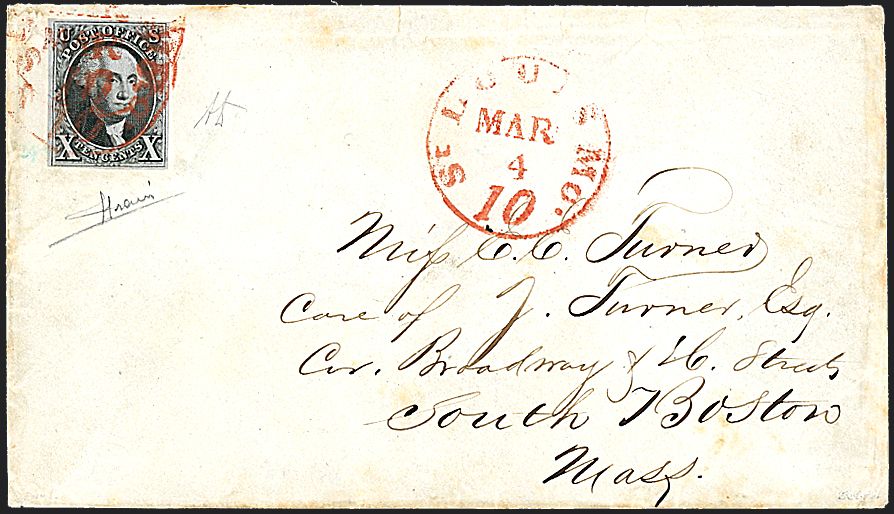 U S
POST OFFICE
X TEN CENTS X
St LOUIS Mo.
MAR
4
10
Miss C. C. Turner
Care of J. Turner, Esq.
Cor. Broadway & H. Streets
South Boston
Mass.